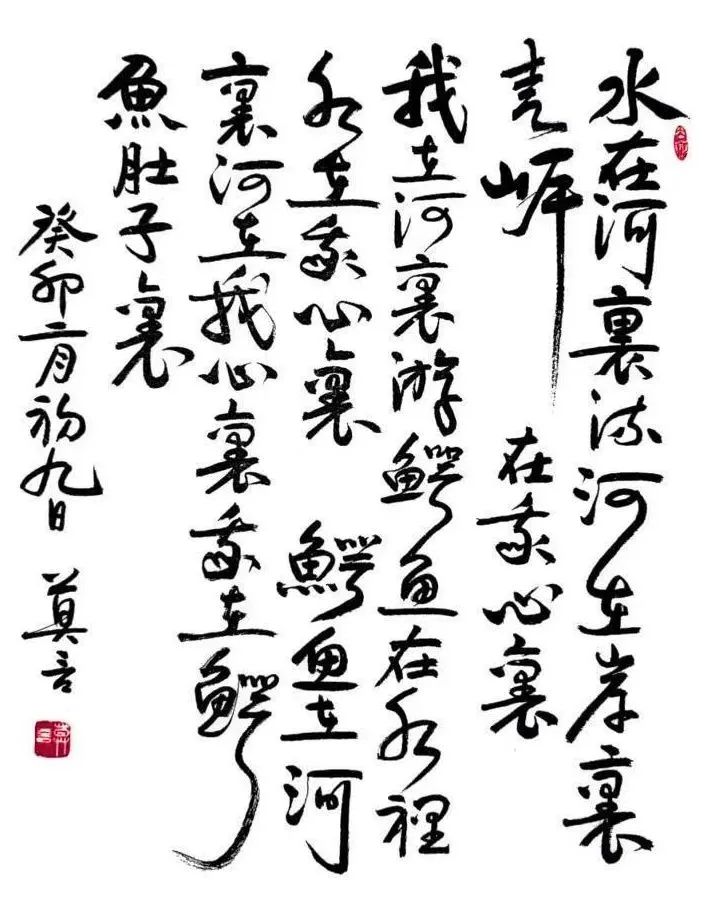 水在河裏流河在岸裏
走岸在我心裏
我在河裏游鰐魚在水裡
水在我心裏 鰐魚在河
裏河在我心裏我在鰐
魚肚子裏
癸卯二月初九日 莫言